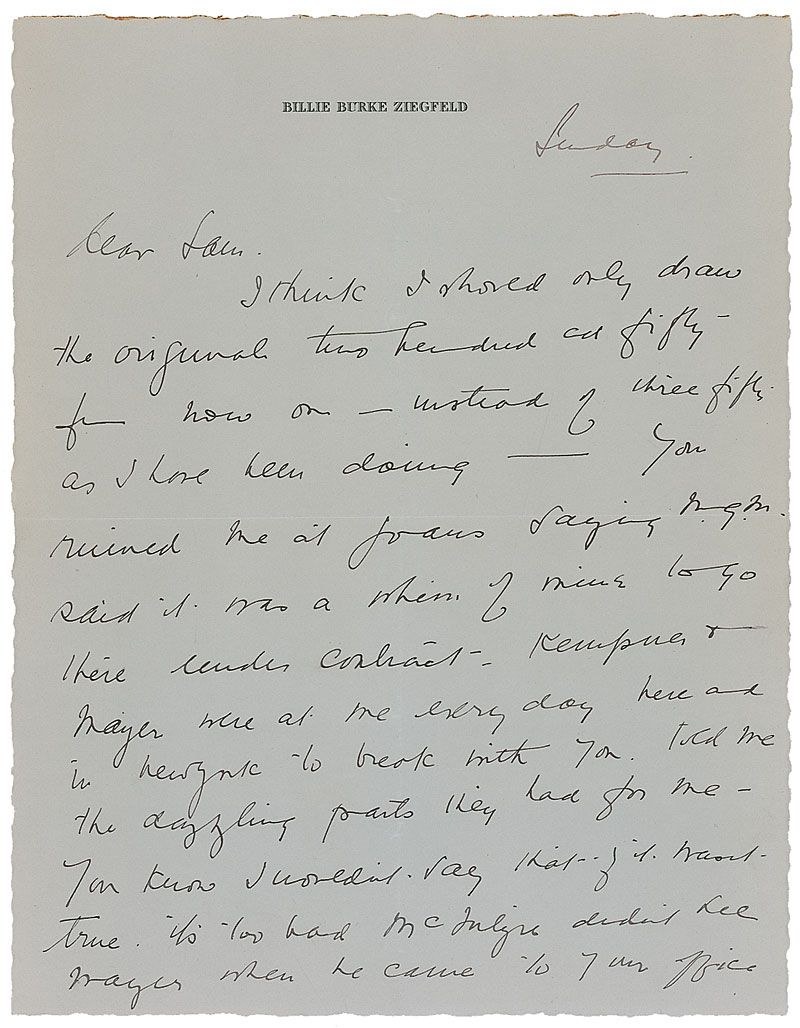 BILLIE BURKE ZIEGFELD
Sunday.
Dear Sam.
I think I should only draw
the original two hundred and fifty
from now on — instead of three fifty
as I have been doing — You
ruined me at saying M.G.M.
said it was a whim of mine to go
there under contract - Kempner &
Mayer were at me every day here and
in New York to break with you. Told me
the dazzling parts they had for me -
You know I wouldn't say that - if it wasn't
true. it's too bad McIntyre didn't see
Mayer when he came to your office